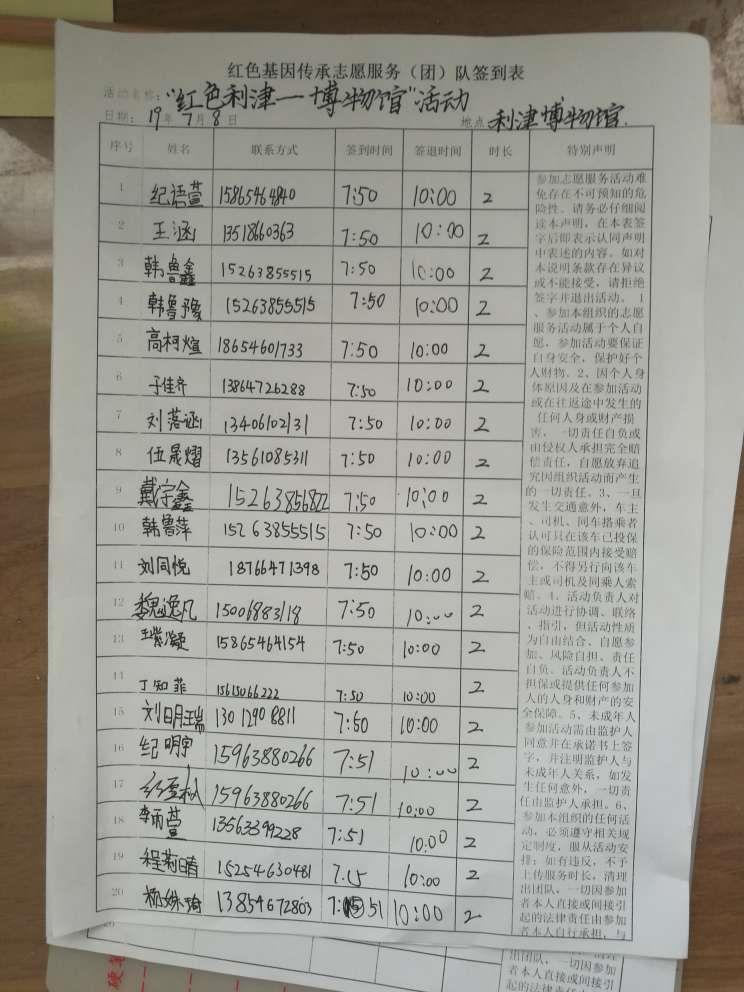 红色基因传承志愿服务（团）队签到表
活动名称："红色利津一博物馆"活动
日期：19年7月8日 地点 利津博物馆.
序号 姓名 联系方式 签到时间 签退时间 时长 特别声明
1 纪语萱 15865464840 7:50 10:00 2
2 王涵 13518660363 7:50 10:00 2
3 韩鲁鑫 15263855515 7:50 10:00 2
4 韩鲁豫 15263855515 7:50 10:00 2
5 高柯煊 18654601733 7:50 10:00 2
6 于佳齐 13864726288 7:50 10:00 2
7 刘落涵 13406102131 7:50 10:00 2
8 伍晟熠 13561085311 7:50 10:00 2
9 戴宇鑫 15263856822 7:50 10:00 2
10 韩鲁萍 15263855515 7:50 10:00 2
11 刘同悦 18766471398 7:50 10:00 2
12 魏逸凡 15006883118 7:50 10:00 2
13 王紫凝 15865464154 7:50 10:00 2
14 丁知菲 15615066222 7:50 10:00 2
15 刘明瑞 13012908811 7:50 10:00 2
16 纪明宇 15963880266 7:51 10:00 2
17 15963880266 7:51 10:00 2
18 李炳萱 13563399228 7:51 10:00 2
19 程莉晴 15254630481 7.15 10:00 2
20 杨姝琦 13854672803 7: 51 10:00 2
参加志愿服务活动难
免存在不可预知的危
险性。请务必仔细阅
读本声明，在本表签
字后即表示认同声明
中表述的内容。如对
本说明条款存在异议
或不能接受，请拒绝
签字并退出活动。1
、参加本组织的志愿
服务活动属于个人自
愿，参加活动要保证
自身安全，保护好个
人财物。2、因个人身
体原因及在参加活动
或在往返途中发生的
任何人身或财产损
害，一切责任自负或
由侵权人承担完全赔
偿责任，自愿放弃追
究因组织活动而产生
的一切责任。3、一旦
发生交通意外，车主
、司机、同车搭乘者
认可只在该车已投保
的保险范围内接受赔
偿，不得另行向该车
主或司机及同乘人索
赔。4、活动负责人对
活动进行协调、联络
、指引，但活动性质
为自由结合、自愿参
加、风险自担、责任
自负。活动负责人不
担保或提供任何参加
人的人身和财产的安
全保障。5、未成年人
参加活动需由监护人
同意并在承诺书上签
字，并注明监护人与
未成年人关系，如发
生任何意外，一切责
任由监护人承担。6、
参加本组织的任何活
动，必须遵守相关规
定制度，服从活动安
排；如有违反，不予
上传服务时长，清理
出团队，一切因参加
者本人直接或间接引
起的法律责任由参加
者本人自行承担，与
出团队，一切因参加
者本人直接或间接引